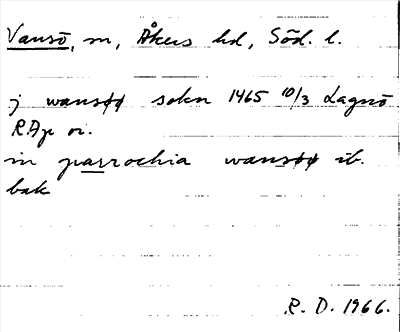 Vansö, m, Åkers hd, Söd. l.
j wansøø sokn 1465 10/3 Lagnö
RAp or.
in parrochia wansøø ib.
bak
R. D. 1966.